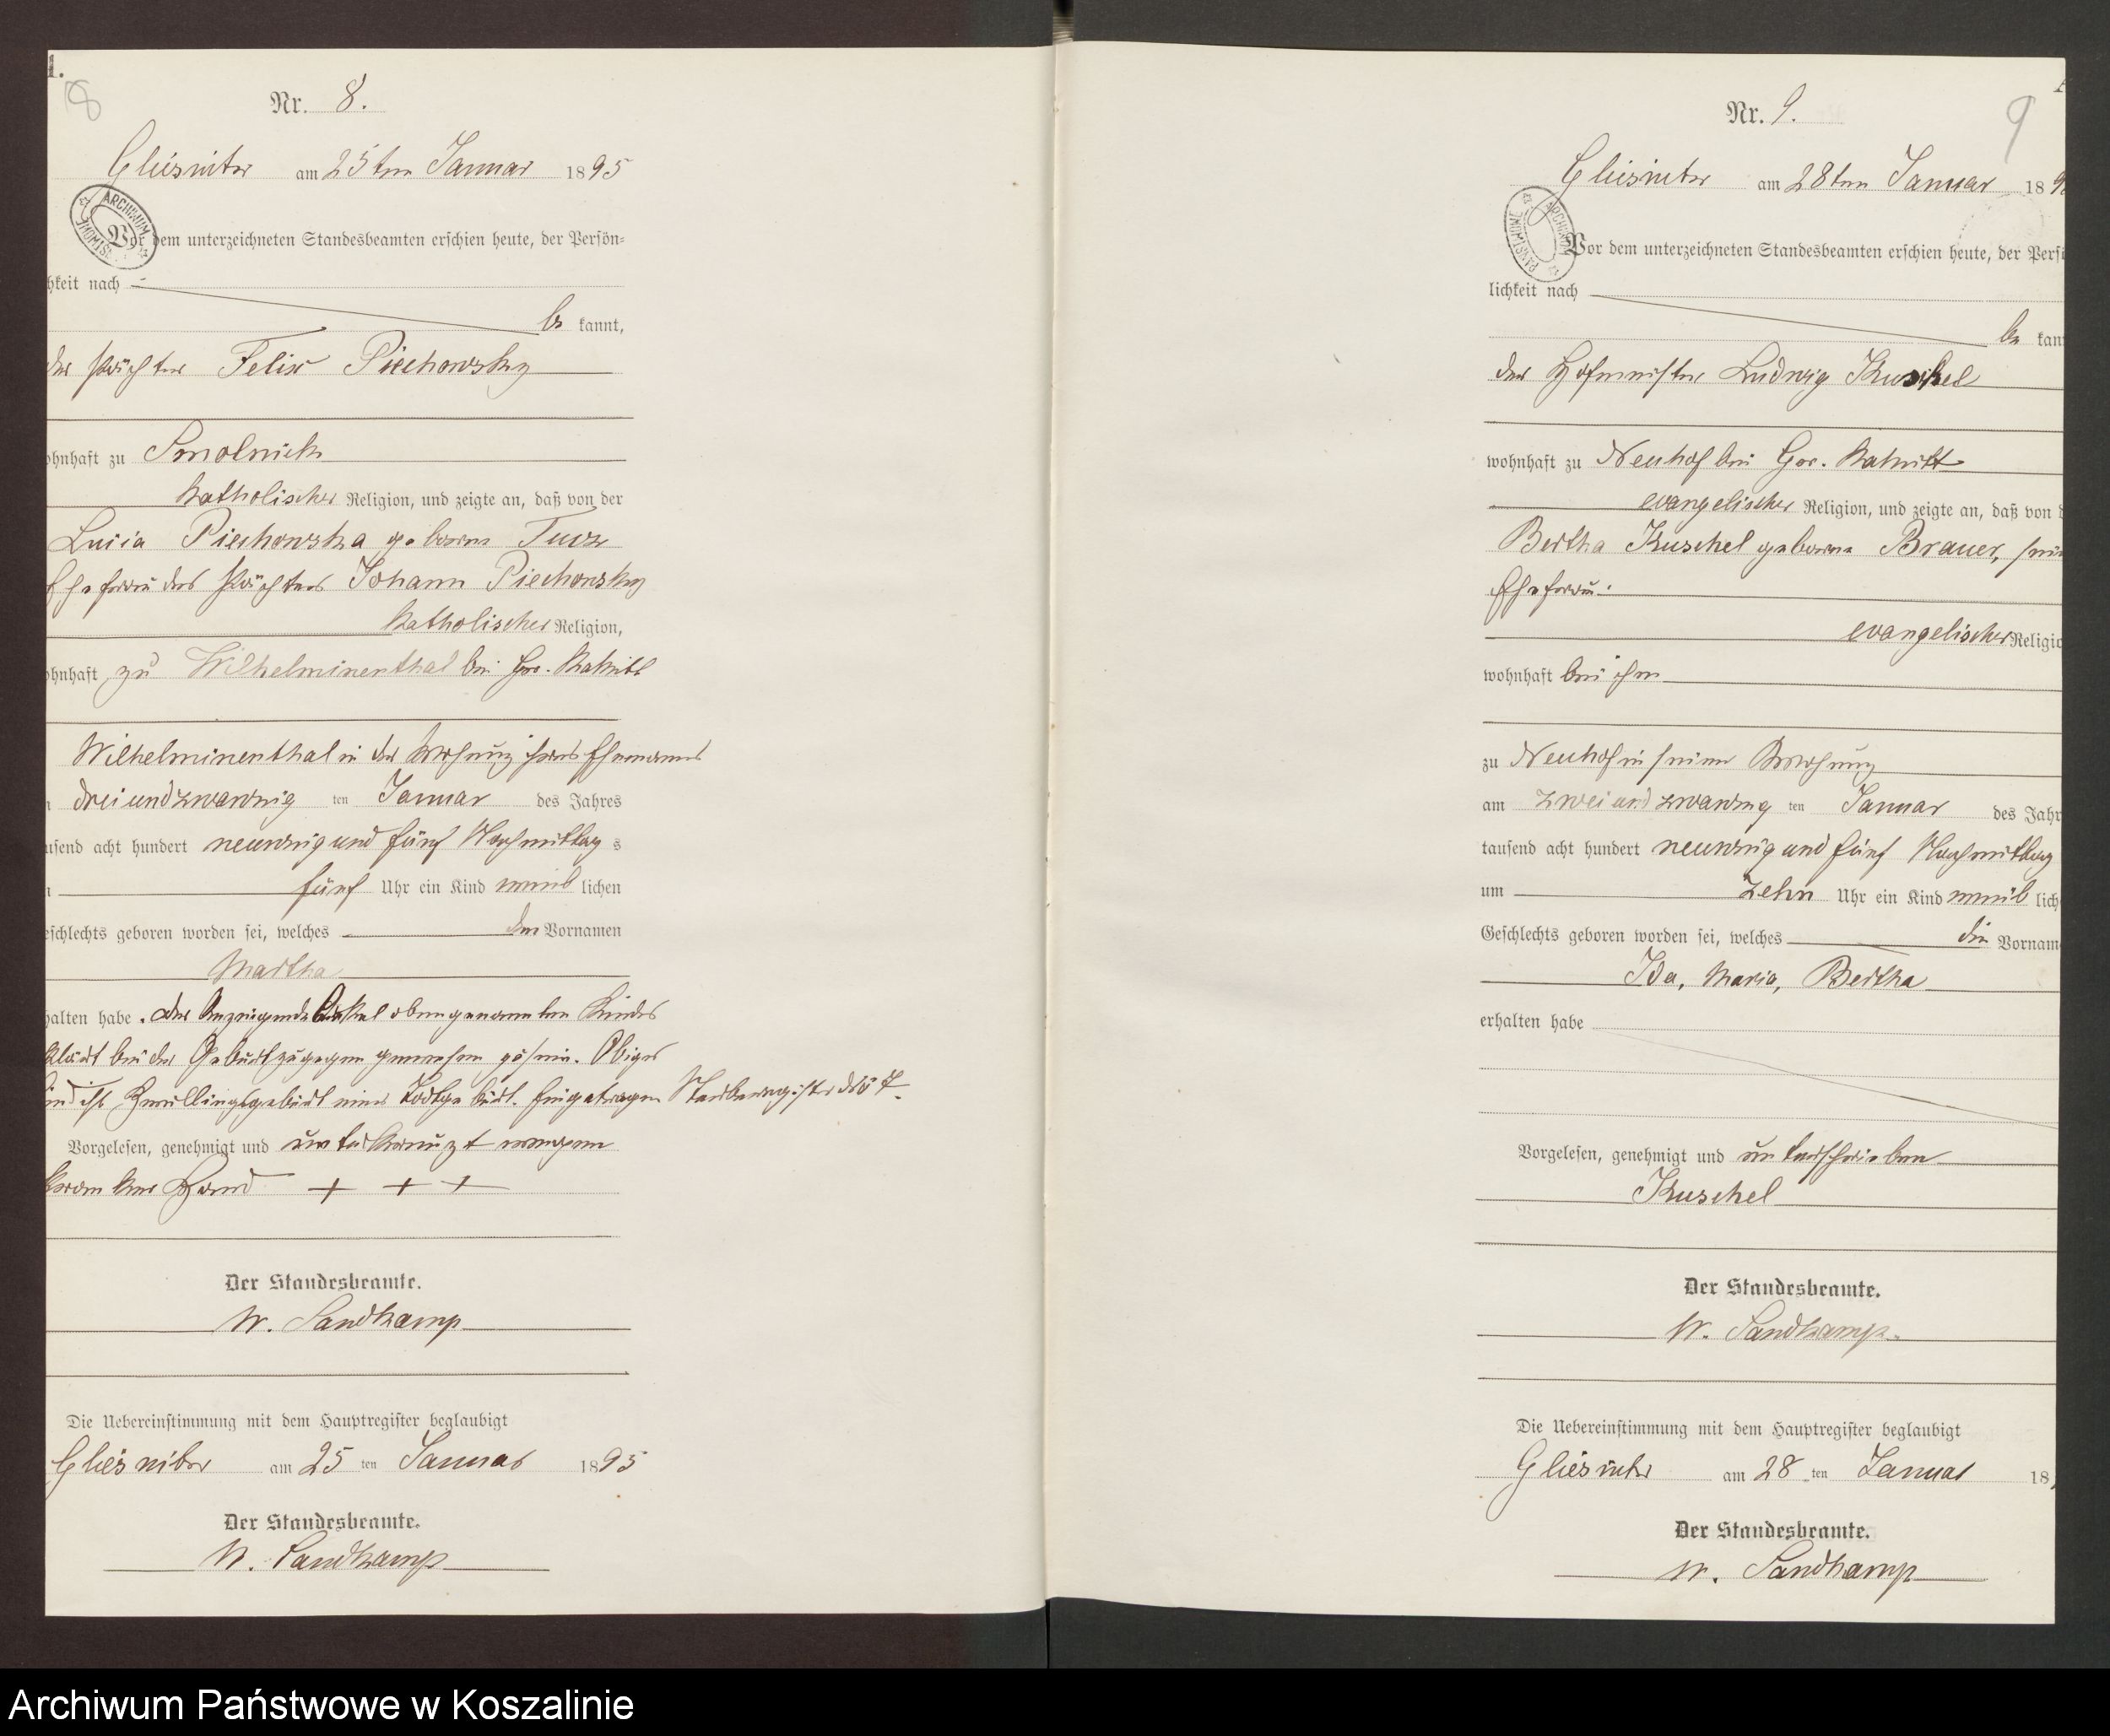 8
Nr. 8.
Gliesnitz am 25ten Januar 1895
ARCHIWUM
Vor dem unterzeichneten Standesbeamten erschien heute, der Persön=
hkeit nach
be kannt,
der Pächter Felix Piechowsky
ohnhaft zu Smolnick
katholischer Religion, und zeigte an, daß von der
Lucia Piechowska geborne
Ehefrau des Pächters Johann Piechowsky
katholischer Religion,
ohnhaft zu Wilhelminenthal bei Gr. Rakitt
Wilhelminenthal in der Wohnung ihres Ehemannes
dreiundzwanzig ten Januar des Jahres
usend acht hundert neunzig und fünf Nachmittag s
fünf Uhr ein Kind weib lichen
eschlechts geboren worden sei, welches den Vornamen
Martha
halten habe. Der Anzeigende Onkel obengenannten Kindes
klärt bei der Geburt zugegen gewesen zu sein. Obiges
ind ist Zwillingsgeburt einer Todtgeburt. Eingetragen Sterberegister No 7.
Vorgelesen, genehmigt und unterkreuzt wegen
kranker Hand + + +
Der Standesbeamte.
W. Sandkamp
Die Uebereinstimmung mit dem Hauptregister beglaubigt
Gliesnitz am 25 ten Januar 1895
Der Standesbeamte.
W. Sandkamp
9
Nr. 9.
Gliesnitz am 28ten Januar 189
ARCHIWUM PAŃSTWOWE
Vor dem unterzeichneten Standesbeamten erschien heute, der Persö
lichkeit nach
be kan
der Hofmeister Ludwig Kuschel
wohnhaft zu Neuhof bei Gr. Rakitt
evangelischer Religion, und zeigte an, daß von d
Bertha Kuschel geborne Brauer, sein
Ehefrau.
evangelischer Religio
wohnhaft bei ihm
zu Neuhof in seiner Wohnung
am zweiundzwanzig ten Januar des Jahr
tausend acht hundert neunzig und fünf Nachmittag
um zehn Uhr ein Kind weib lich
Geschlechts geboren worden sei, welches die Vornam
Ida, Maria, Bertha
erhalten habe
Vorgelesen, genehmigt und unterschrieben
Kuschel
Der Standesbeamte.
W. Sandkamp.
Die Uebereinstimmung mit dem Hauptregister beglaubigt
Gliesnitz am 28 ten Januar 18
Der Standesbeamte.
W. Sandkamp
Archiwum Państwowe w Koszalinie